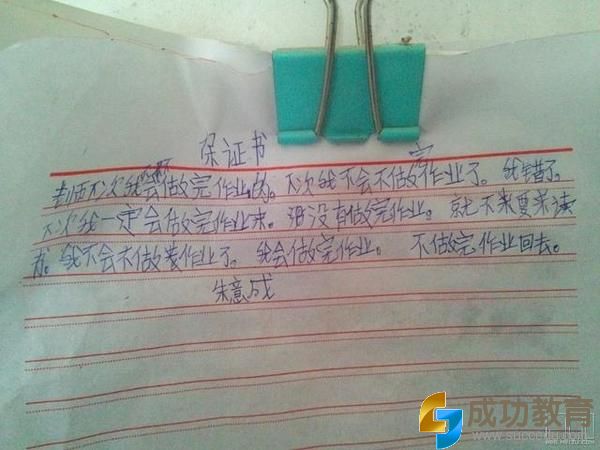 保证书
完
老师下次我一定会做完作业的。下次我不会不做作业了。我错了。
下次我一定会做完作业来。没有做完作业。就不来要来读
书。我不会不做完作业了。我会做完作业。不做完作业回去。
朱意成
成功教育